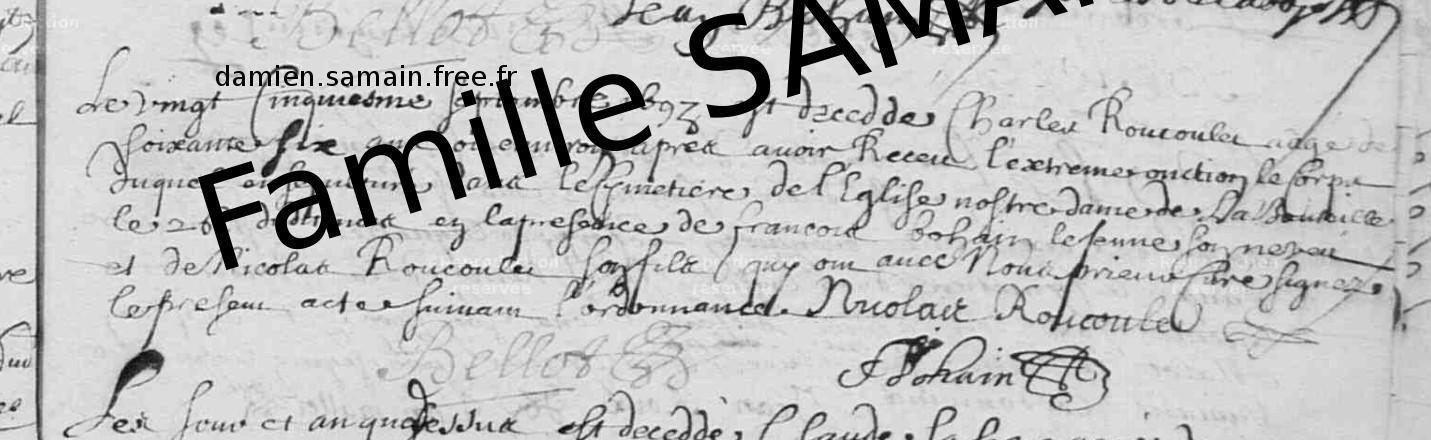 Bellot Jean Bohain
damien.samain.free.fr
Famille SAMAIN
Le vingt Cinquiesme septembre 1693 est decedde Charles Roucoulet aagé de
soixante six ans ou environ apres avoir Receu l'extreme onction le Corps
duquel ensepulture dans le Cymetiere de l'Eglise nostre dame de La Bouteille
le 26 en la presence de francois bohain le Jeune son neveu
et de Nicolas Roucoule son fils quy ont avec Nous prieur Cure signez
le present acte suivant l'ordonnance. Nicolais Roucoulet
Bellot JBohain
Les Jour et an que dessus est deceddé Claude